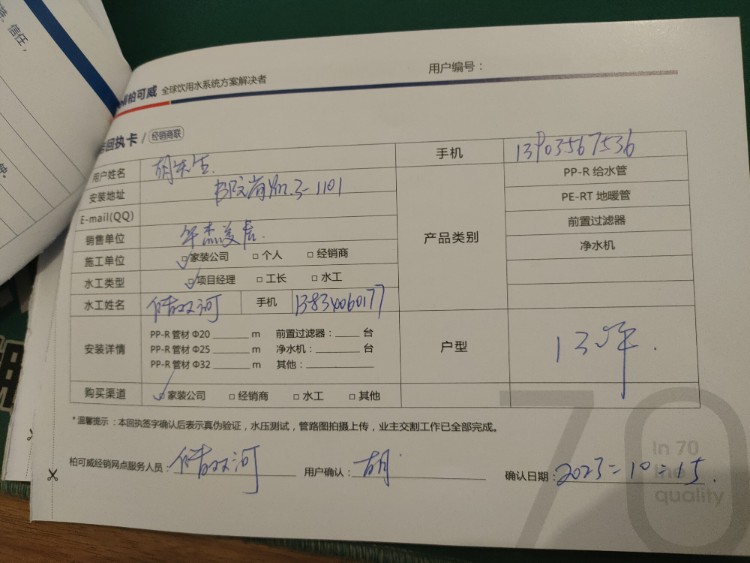 信任,
柏可威 全球饮用水系统方案解决者
用户编号：
回执卡 / 经销商联
用户姓名 胡先生 手机 13903567536
安装地址 3-1101
E-mail(QQ)
销售单位 产品类别
PP-R 给水管
PE-RT 地暖管
前置过滤器
净水机
施工单位 □家装公司 □个人 □经销商
水工类型 □项目经理 □工长 □水工
水工姓名 双河 手机
安装详情 户型
PP-R 管材 Φ20 ______ m 前置过滤器：____ 台
PP-R 管材 Φ25 ______ m 净水机：______ 台
PP-R 管材 Φ32 ______ m 其他：________
购买渠道 □家装公司 □经销商 □水工 □其他
*温馨提示：本回执签字确认后表示真伪验证，水压测试，管路图拍摄上传，业主交割工作已全部完成。
柏可威经销网点服务人员： 双河 用户确认：胡 确认日期：2023-10-15.
70
In 70
quality